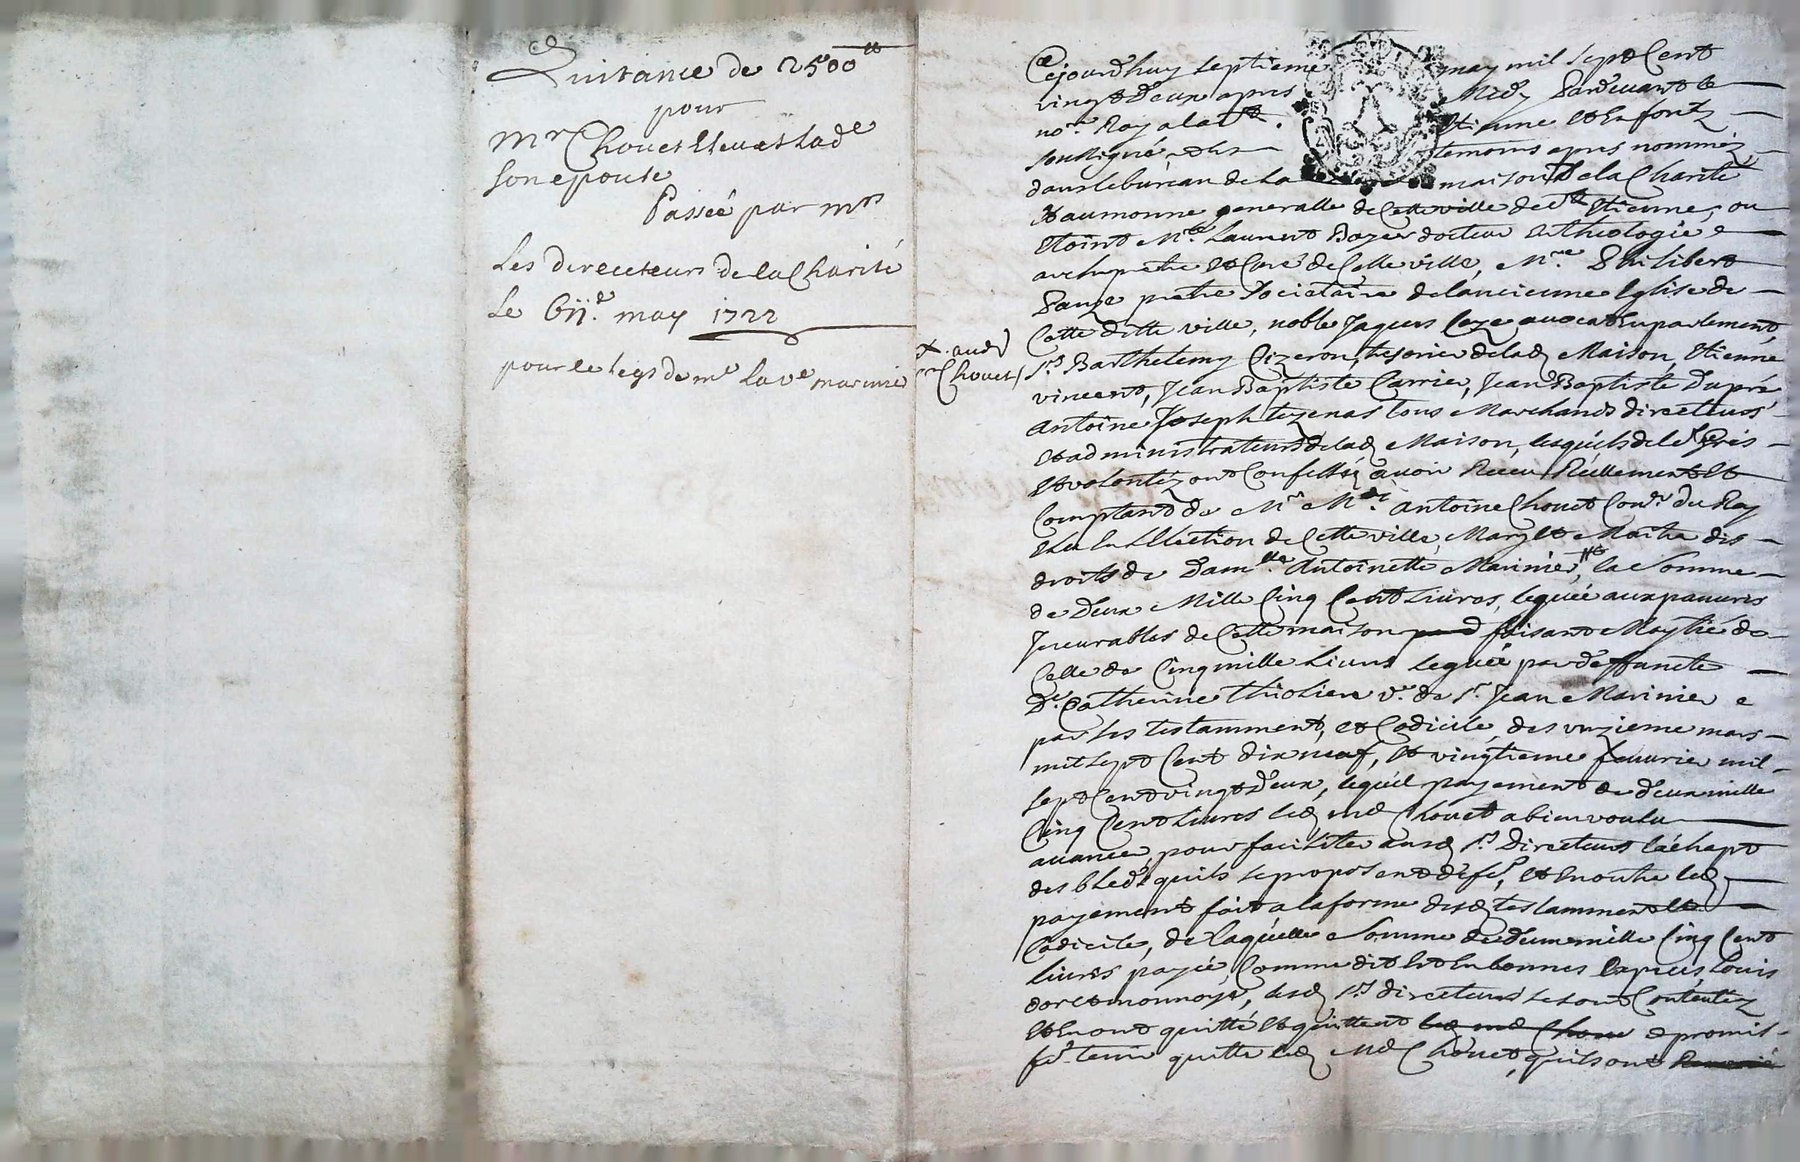 Quitance de 2500ᵗᵗ
pour
Mr Chovet Eleu et lade
son epouse
Passée par mrs
Les directeurs de la Charité
Le 6ij.e may 1722
pour le legs de me la ve marinier
x. aud
sr Chovet
Cejourdhuy septieme may mil sept Cent
vingt deux apres Midy Pardevant le
nore Royal a St. Etienne et En foretz
soussigné et les temoins apres nommés
dans le bureau de La maison de la Charité
et aumonne generalle de Cette ville de St Etienne, ou
Etoint Mre Laurent Boyer docteur En theologie
archipretre et Curé de Cette ville, Mre Philibert
Pauze pretre Societaire de lancienne Eglise de
Cette ditte ville, noble Jaques Caze avocat En parlement,
Sr Barthelemy Cizeron, tresorier de lad Maison, Etienne
vincent, Jean Baptiste Carrier, Jean Baptiste Dupré,
Antoine Joseph tezenas tous Marchands directeurs
et administrateurs de lad Maison, lesquels de leur Grés
et volontéz ont Confessé avoir Receu Reellement et
Comptant de Mr Me Antoine Chovet Conr du Roy
Eleu En lElection de Cette ville, Mary et Maitre des
droits de Damlle Antoinette Marinier, la Somme
de Deux Mille Cinq Cent Livres, leguée aux pauvres
Jncurables de Cette maison faisant Moytié de
Celle de Cinq mille Livres leguée par deffuncte
De Catherine thiolliere ve de Sr Jean Marinier
par ses testamment, et Codicile, des unzieme mars
mil sept Cent dix neuf, et vingtieme fevrier mil
sept Cent vingt deux, lequel payement de deux mille
Cinq Cent Livres led Chovet a bien voulu
avancer, pour faciliter ausd Srs Directeurs l'achapt
des bleds quils se proposent de fe, et En outre led
payement fait a la forme desd testamment et
Codicile, de laquelle Somme de deux mille Cinq Cent
livres payée, Comme dit Est En bonnes Especes, Louis
dor et monnoye, lesd Srs directeurs se sont Contentéz
et En ont quitté et quittent promis
fe tenir quitte led Chovet, quils ont